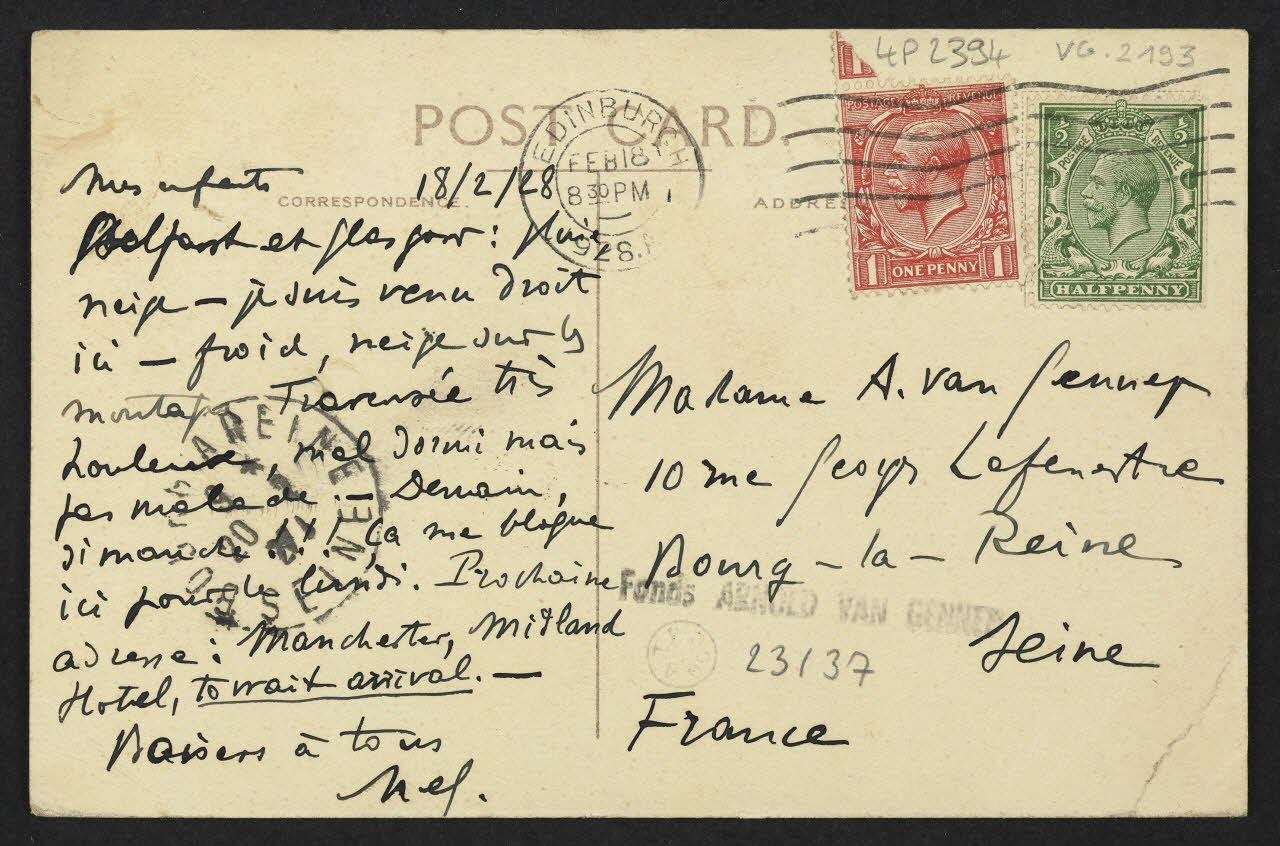 4P2394 VG.2193
POST CARD.
CORRESPONDENCE.
ADDRESS
EDINBURGH
FEB 18
8 30 PM
1928.
POSTAGE REVENUE
1 ONE PENNY 1
½ POSTAGE REVENUE ½
HALFPENNY
Mes enfants 18/2/28
Belfast et Glasgow : pluie,
neige — je suis venu droit
ici — froid, neige sur les
montagnes Traversée très
houleuse, mal dormi mais
pas malade. — Demain,
dimanche . ! . ! Ça me bloque
ici pour le lundi. Prochaine
adresse : Manchester, Midland
Hotel, to wait arrival. —
Baisers à tous
Nel.
BOURG LA REINE
20
SEINE
Madame A. van Gennep
10 rue Georges Lafenestre
Bourg-la-Reine
Seine
France
Fonds ARNOLD VAN GENNEP
23/37